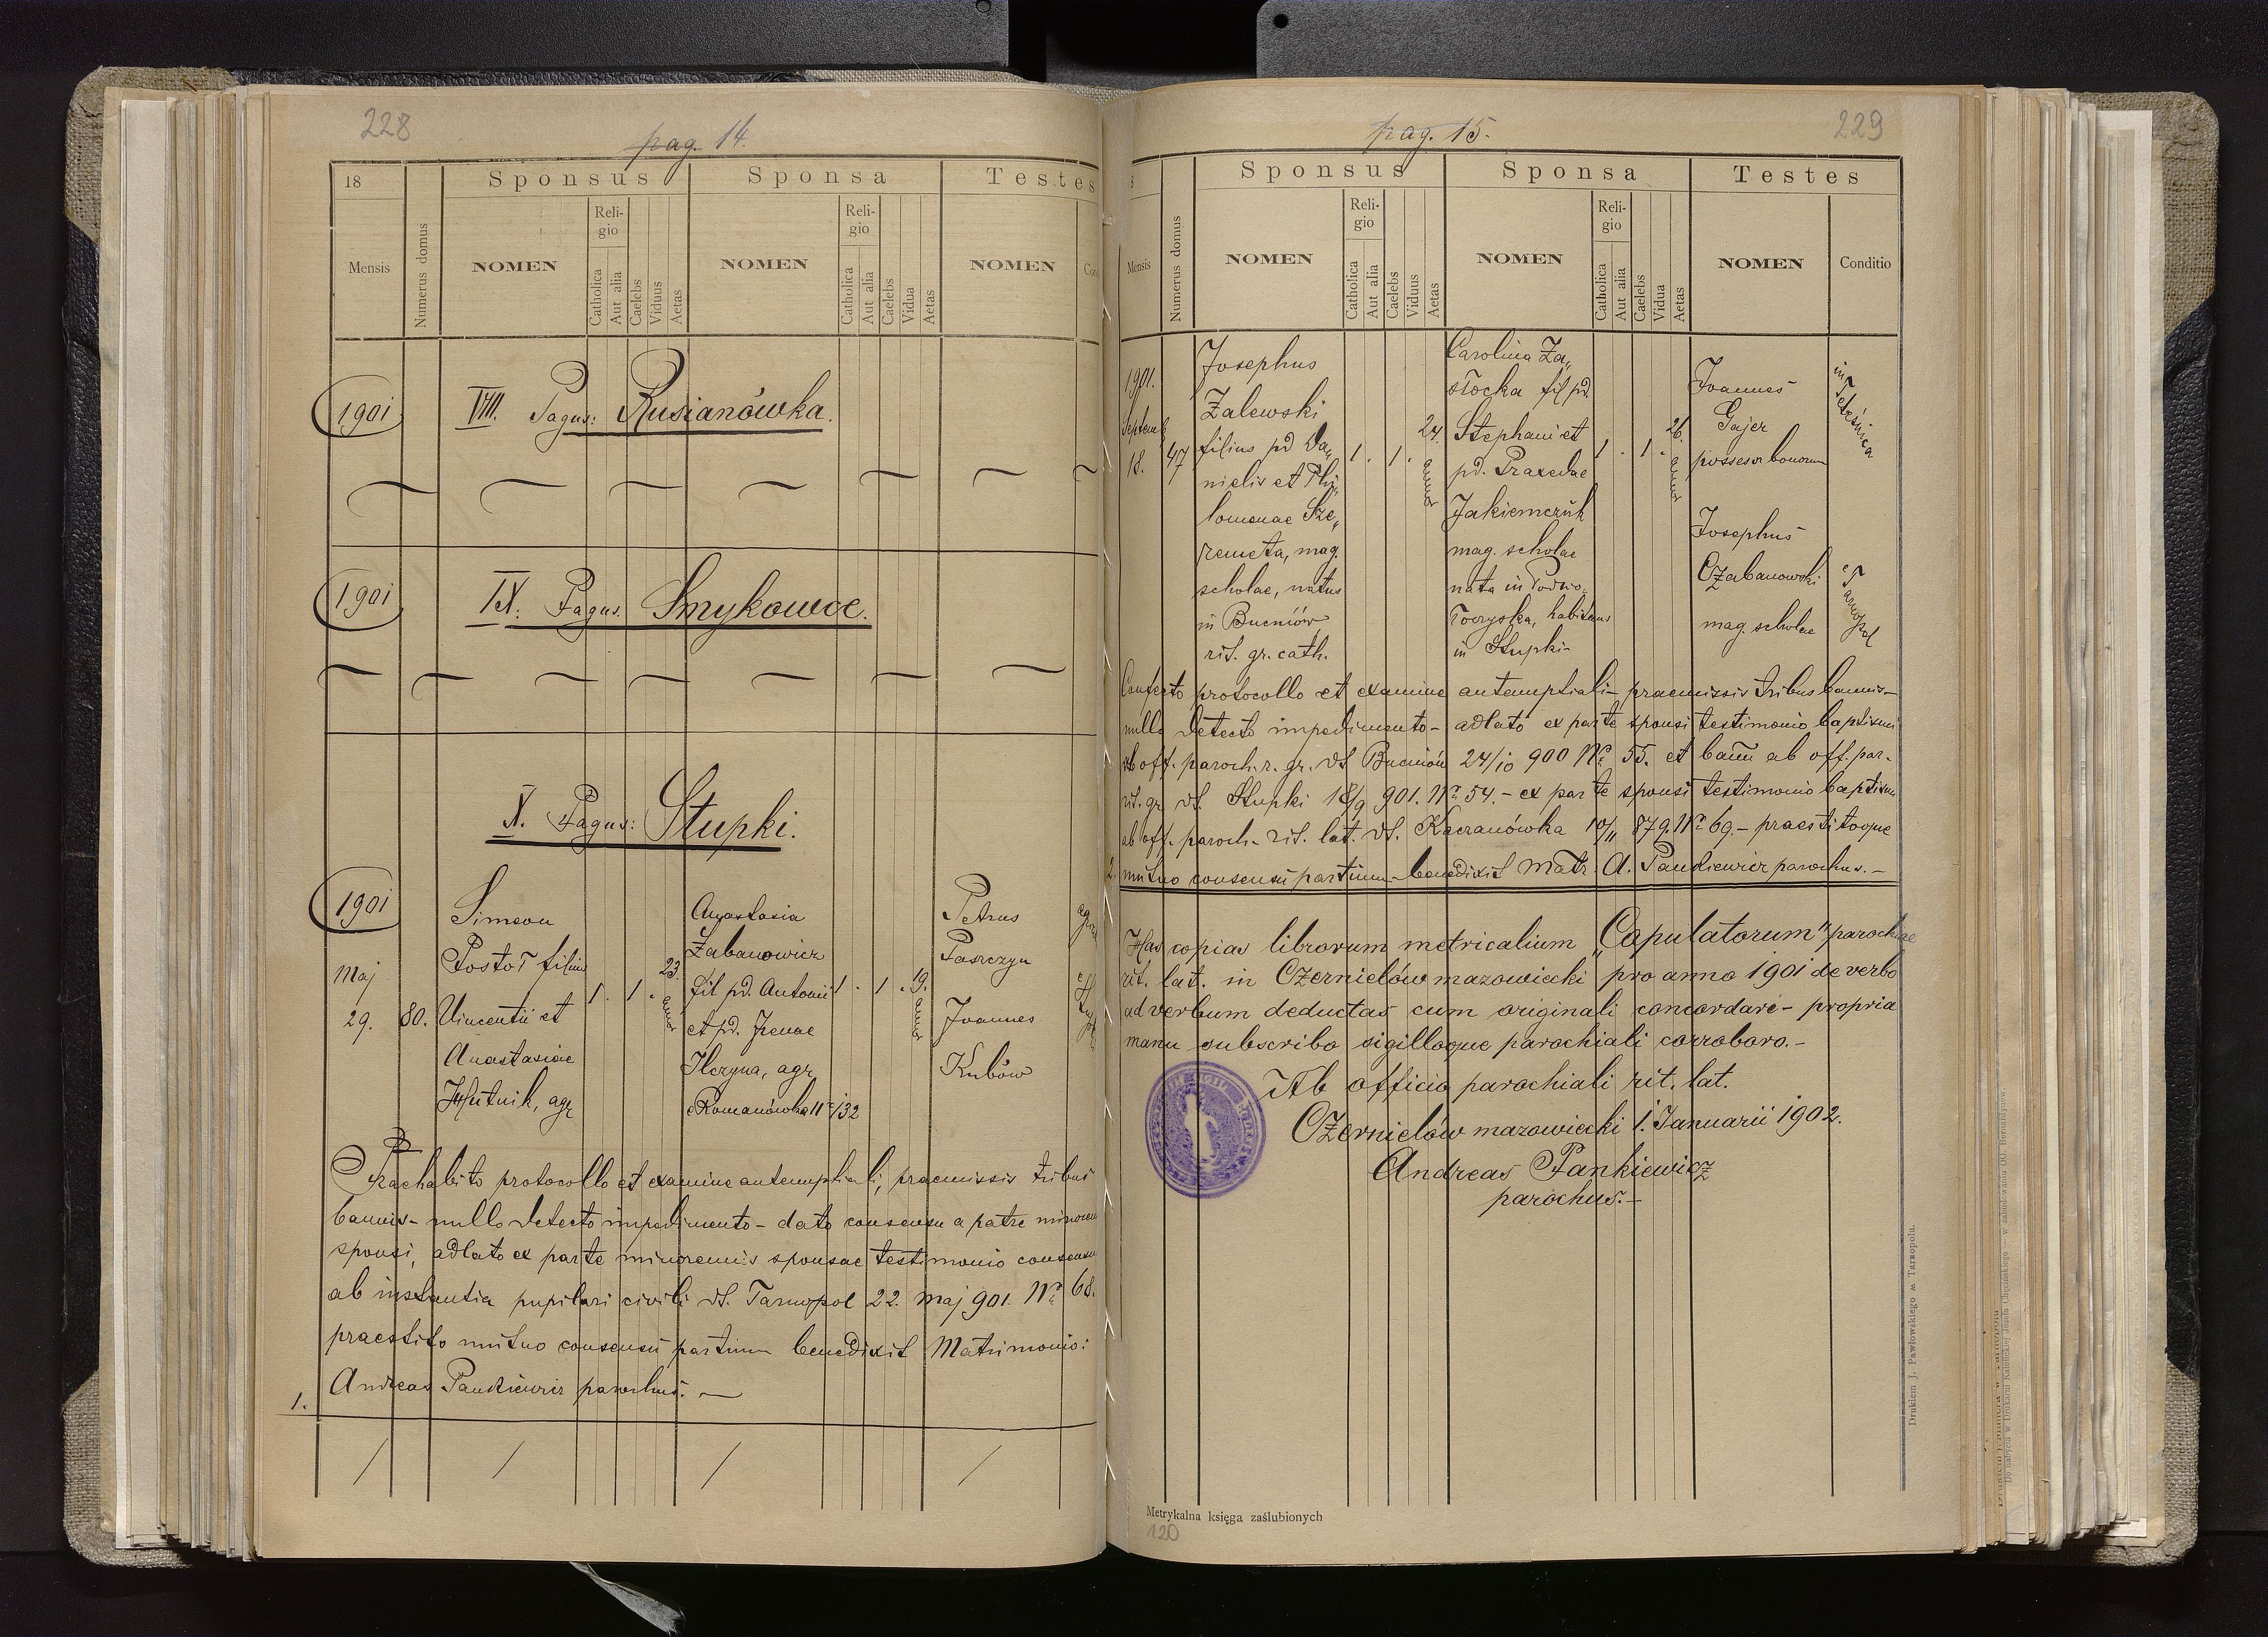 228
pag. 14.
18
Sponsus
Sponsa
Testes
Mensis
Numerus domus
NOMEN
Religio
Catholica
Aut alia
Caelebs
Viduus
Aetas
NOMEN
Religio
Catholica
Aut alia
Caelebs
Vidua
Aetas
NOMEN
1901
VIII. Pagus: Rusianówka.
1901
IX. Pagus. Smykowce.
X. Pagus: Stupki.
1901
Maj
29.
80.
Simeon
Postoł filius
Vincentii et
Anastasiae
Hutnik, agr.
1. 1. 23. annor
Anastasia
Zabanowicz
fil pd. Antonii
et pd. Irenae
Ilczyna, agr.
Romanówka 11/132
1. 1. 19. annor
Petrus
Paszczyn
Joannes
Kubów
Praehabito protocollo et examine antenuptiali, praemissis tribus
bannis - nullo detecto impedimento - dato consensu a patre minoren
sponsi, adlato ex parte minorennis sponsae testimonio consensu
ab instantia pupilari civili dt. Tarnopol 22. Maj 901. Nr 68.
praestito mutuo consensu partium benedixit Matrimonio:
1. Andreas Pankiewicz parochus. —
229
pag. 15.
Sponsus
Sponsa
Testes
Mensis
Numerus domus
NOMEN
Religio
Catholica
Aut alia
Caelebs
Viduus
Aetas
NOMEN
Religio
Catholica
Aut alia
Caelebs
Vidua
Aetas
NOMEN
Conditio
1901.
Septemb
18.
47
Josephus
Zalewski
filius pd Da„
nielis et Phi„
lomenae Sze„
remeta, mag.
scholae, natus
in Bucniów
rit. gr. cath.
1. 1. 24. annor
Carolina Za„
słocka fil pd.
Stephani et
pd. Praxedae
Jakiemczuk
mag. scholae
nata in Podwo„
łoczyska, habitans
in Stupki-
1. 1. 26. annor
Joannes
Gajer
possesor bonorum
Josephus
Czabanowski
mag. scholae
Tarnopol
Confecto protocollo et examine antenuptiali - praemissis tribus bannis -
nullo detecto impedimento - adlato ex parte sponsi testimonio baptismi
ab off. paroch. r. gr. dt Bucniów 24/10 900 Nr. 55. et bann ab off. par.
rit. gr. dt. Stupki 18/9 901. Nr 54. - ex parte sponsi testimonio baptism
ab off. paroch. rit. lat. dt. Kaczanówka 10/11 879. Nr 69. - praestitoque
2. mutuo consensu partium benedixit Matr. A. Pankiewicz parochus. -
Has copias librorum metricalium „Copulatorum" parochiae
rit. lat. in Czernielów mazowiecki pro anno 1901 de verbo
ad verbum deductas cum originali concordare - propria
manu subscribo sigilloque parochiali corroboro. -
Ab officio parochiali rit. lat.
Czernielów mazowiecki 1. Januarii 1902.
Andreas Pankiewicz
parochus. -
Metrykalna księga zaślubionych
120
Drukiem J. Pawłowskiego w Tarnopolu.